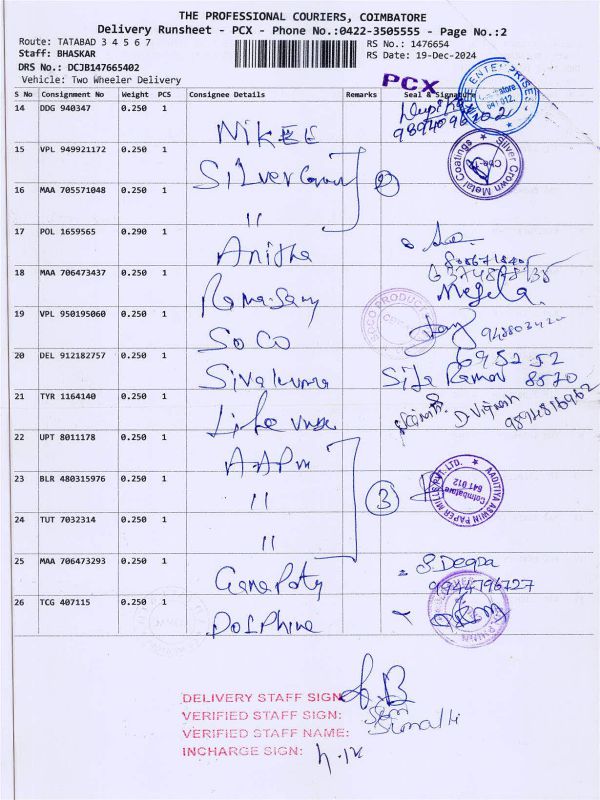 THE PROFESSIONAL COURIERS, COIMBATORE
Delivery Runsheet - PCX - Phone No.:0422-3505555 - Page No.:2
Route: TATABAD 3 4 5 6 7
RS No.: 1476654
Staff: BHASKAR
RS Date: 19-Dec-2024
DRS No.: DCJB147665402
Vehicle: Two Wheeler Delivery
PCX
S No Consignment No Weight PCS Consignee Details Remarks Seal & Signature
14 DDG 940347 0.250 1 NIKEE
15 VPL 949921172 0.250 1 Silver Crown 2 Silver Crown Metal Coatings Cbe-12
16 MAA 705571048 0.250 1 "
17 POL 1659565 0.290 1 Anitha
18 MAA 706473437 0.250 1 Ramasamy
19 VPL 950195060 0.250 1 SOCO
20 DEL 912182757 0.250 1 Sivakumar Sita Raman 8520
21 TYR 1164140 0.250 1 D. Vignesh
22 UPT 8011178 0.250 1 AAPM
23 BLR 480315976 0.250 1 " 3 AADITIYA ASWIN PAPER MILLS PVT. LTD. Coimbatore 641 012
24 TUT 7032314 0.250 1 "
25 MAA 706473293 0.250 1 Ganapaty S. Deepa
9944796727
26 TCG 407115 0.250 1 Dolphine
DELIVERY STAFF SIGN
VERIFIED STAFF SIGN:
VERIFIED STAFF NAME:
INCHARGE SIGN: